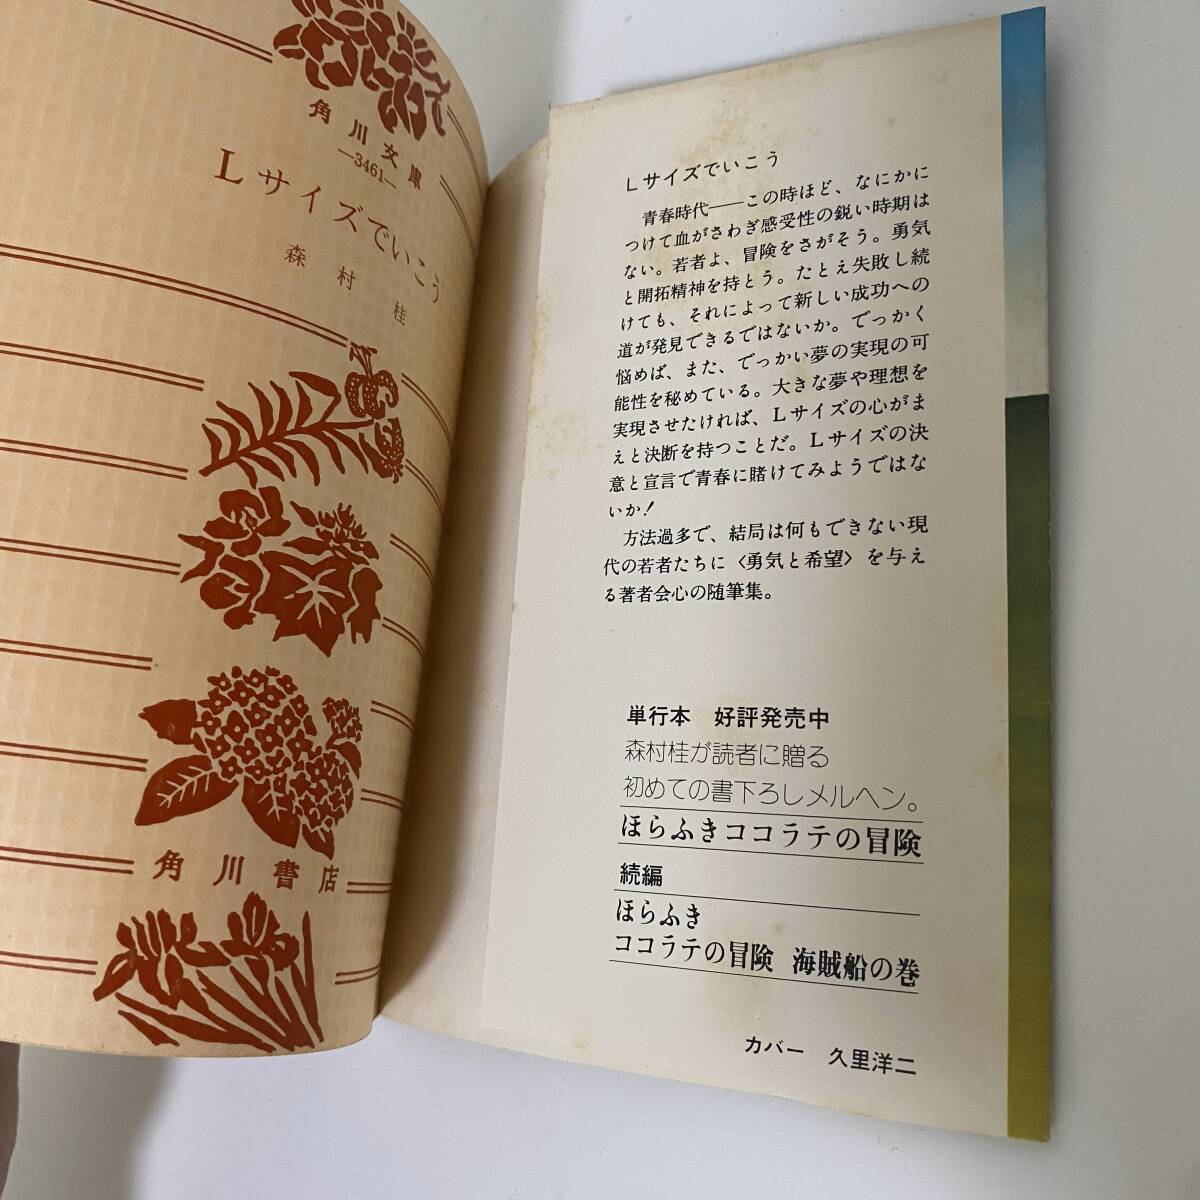 角川文庫
—3461—
Lサイズでいこう
森村 桂
角川書店
Lサイズでいこう
青春時代――この時ほど、なにかに
つけて血がさわぎ感受性の鋭い時期は
ない。若者よ、冒険をさがそう。勇気
と開拓精神を持とう。たとえ失敗し続
けても、それによって新しい成功への
道が発見できるではないか。でっかく
悩めば、また、でっかい夢の実現の可
能性を秘めている。大きな夢や理想を
実現させたければ、Lサイズの心がま
えと決断を持つことだ。Lサイズの決
意と宣言で青春に賭けてみようではな
いか!
方法過多で、結局は何もできない現
代の若者たちに〈勇気と希望〉を与え
る著者会心の随筆集。
単行本 好評発売中
森村桂が読者に贈る
初めての書下ろしメルヘン。
ほらふきココラテの冒険
続編
ほらふき
ココラテの冒険 海賊船の巻
カバー 久里洋二